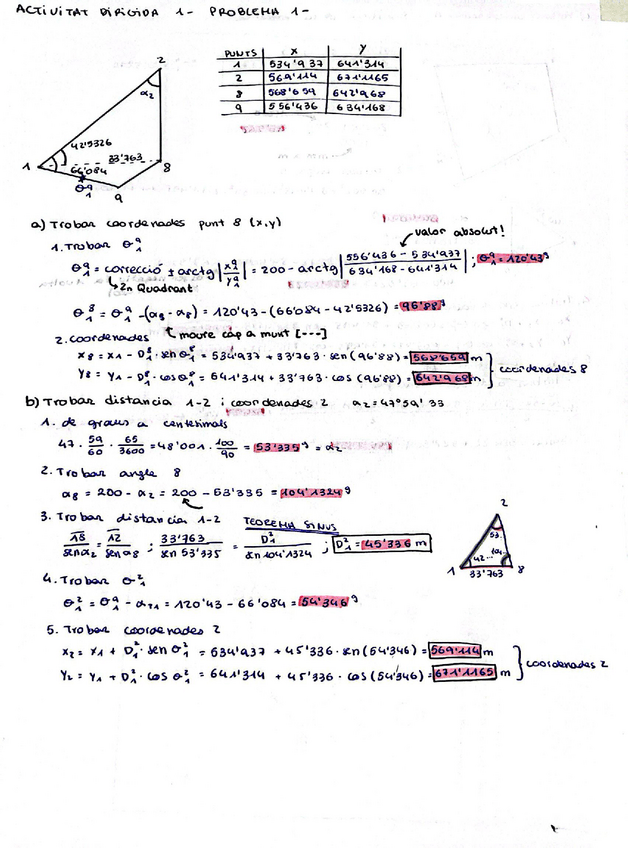 ACTIVITAT DIRIGIDA 1- PROBLEMA 1-
PUNTS X Y
1 534'937 641'314
2 569'114 671'1165
8 568'659 642'968
9 556'436 634'168
2
α2
42'5326
33'763
1
66'084
8
θ 9 1
9
a) Trobar coordenades punt 8 (x,y)
valor absolut!
1. Trobar θ 9 1
θ 9 1 = correcció ± arctg |x9/y9| = 200 - arctg |556'436 - 534'937 / 634'168 - 641'314| ; θ 9 1 = 120'43 g
2n Quadrant
θ 8 1 = θ 9 1 - (α8 - α8) = 120'43 - (66'084 - 42'5326) = 96'88 g
moure cap a munt [---]
2. coordenades
x8 = x1 - D 8 1 · sen θ 8 1 = 534'937 + 33'763 · sen (96'88) = 568'659 m
y8 = y1 - D 8 1 · cos θ 8 1 = 641'314 + 33'763 · cos (96'88) = 642'968 m
coordenades 8
b) Trobar distancia 1-2 i coordenades 2 α2 = 47º59' 33
1. de graus a centesimals
47 · 59/60 · 65/3600 = 48'001 · 100/90 = 53'335 g = α2
2. Trobar angle 8
α8 = 200 - α2 = 200 - 53'335 = 104'1324 g
3. Trobar distancia 1-2 TEOREMA SINUS
18/sen α2 = 12/sen α8 ; 33'763/sen 53'335 = D 2 1/sin 104'1324 ; D 2 1 = 45'336 m
2
53.
42... 104.
1 33'763 8
4. Trobar θ 2 1
θ 2 1 = θ 9 1 - α = 120'43 - 66'084 = 54'346 g
5. Trobar coordenades 2
x2 = x1 + D 2 1 · sen θ 2 1 = 534'937 + 45'336 · sen (54'346) = 569'114 m
y2 = y1 + D 2 1 · cos θ 2 1 = 641'314 + 45'336 · cos (54'346) = 671'1165 m
coordenades 2